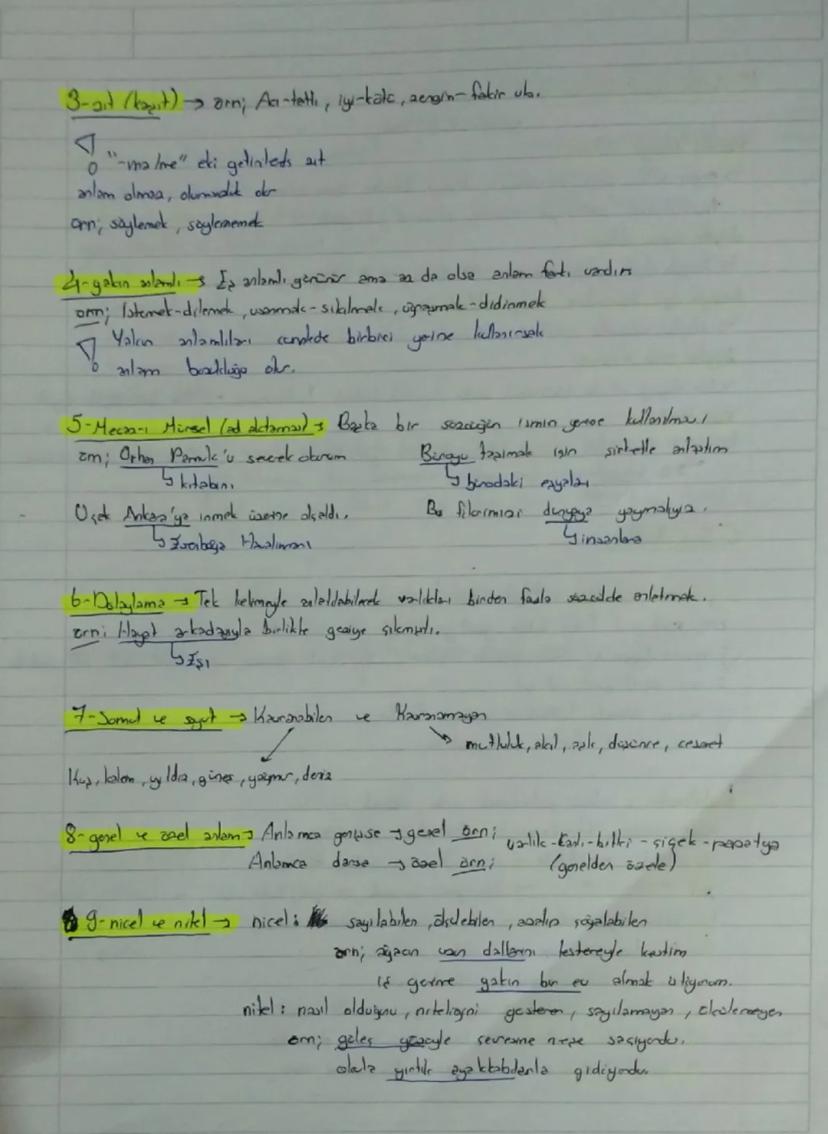 3-zıt (karşıt) → örn; Acı-tatlı, iyi-kötü, zengin-fakir vb.
"-ma/me" eki getirilerek zıt
anlam olmaz, olumsuzluk olur
örn; söylemek, söylememek
4-yakın anlamlı → Eş anlamlı görünür ama az da olsa anlam farkı vardır
örn; İstemek-dilemek, usanmak-sıkılmak, uğraşmak-didinmek
Yakın anlamlıları cümlede birbiri yerine kullanırsak
anlam bozukluğu olur.
5-Mecaz-ı Mürsel (ad aktarması) → Başka bir sözcüğün ismin yerine kullanılması
örn; Orhan Pamuk'u severek okurum
↳ kitabını
Binayı taşımak için şirketle anlaştım
↳ binadaki eşyaları
Uçak Ankara'ya inmek üzere alçaldı.
↳ Esenboğa Havalimanı
Bu fikrimizi dünyaya yaymalıyız.
↳ insanlara
6-Dolaylama → Tek kelimeyle anlatılabilecek varlıkları birden fazla sözcükle anlatmak.
örn: Hayat arkadaşıyla birlikte geziye çıkmıştı.
↳ Eşi
7-Somut ve soyut → Kavranabilen ve Kavranamayan
mutluluk, akıl, aşk, düşünce, cesaret
Kuş, kalem, yıldız, güneş, yağmur, deniz
8-genel ve özel anlam → Anlamca genişse → genel örn; varlık-canlı-bitki-çiçek-papatya
Anlamca darsa → özel örn; (genelden özele)
9-nicel ve nitel → nicel: sayılabilen, ölçülebilen, azalıp çoğalabilen
örn; ağacın uzun dallarını testereyle kestim
iş yerime yakın bir ev almak istiyorum.
nitel: nasıl olduğunu, niteliğini gösteren, sayılamayan, ölçülemeyen
örn; güleç yüzüyle çevresine neşe saçıyordu.
okula yırtık ayakkabılarla gidiyordu